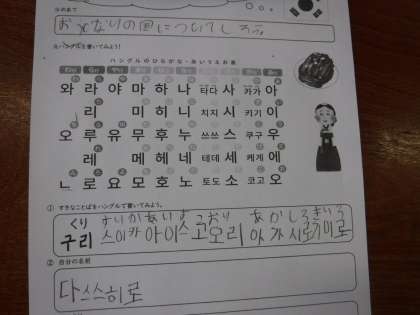 めあて
おとなりの国についてしろう
ハングルを書いてみよう!
ハングルのひらがな・あいうえお表
와 라 야 마 하 나 타다 사 카가 아
리 미 히 니 치지 시 키기 이
오 루 유 무 후 누 쓰스 스 쿠구 우
레 메 헤 네 테데 세 케게 에
ㄴ 로 요 모 호 노 토도 소 코고 오
① すきなことばをハングルで書いてみよう。
くり すいか あいす こおり あか しろ きいろ
구리 스이카 아이스 고오리 아가 시로
② 自分の名前